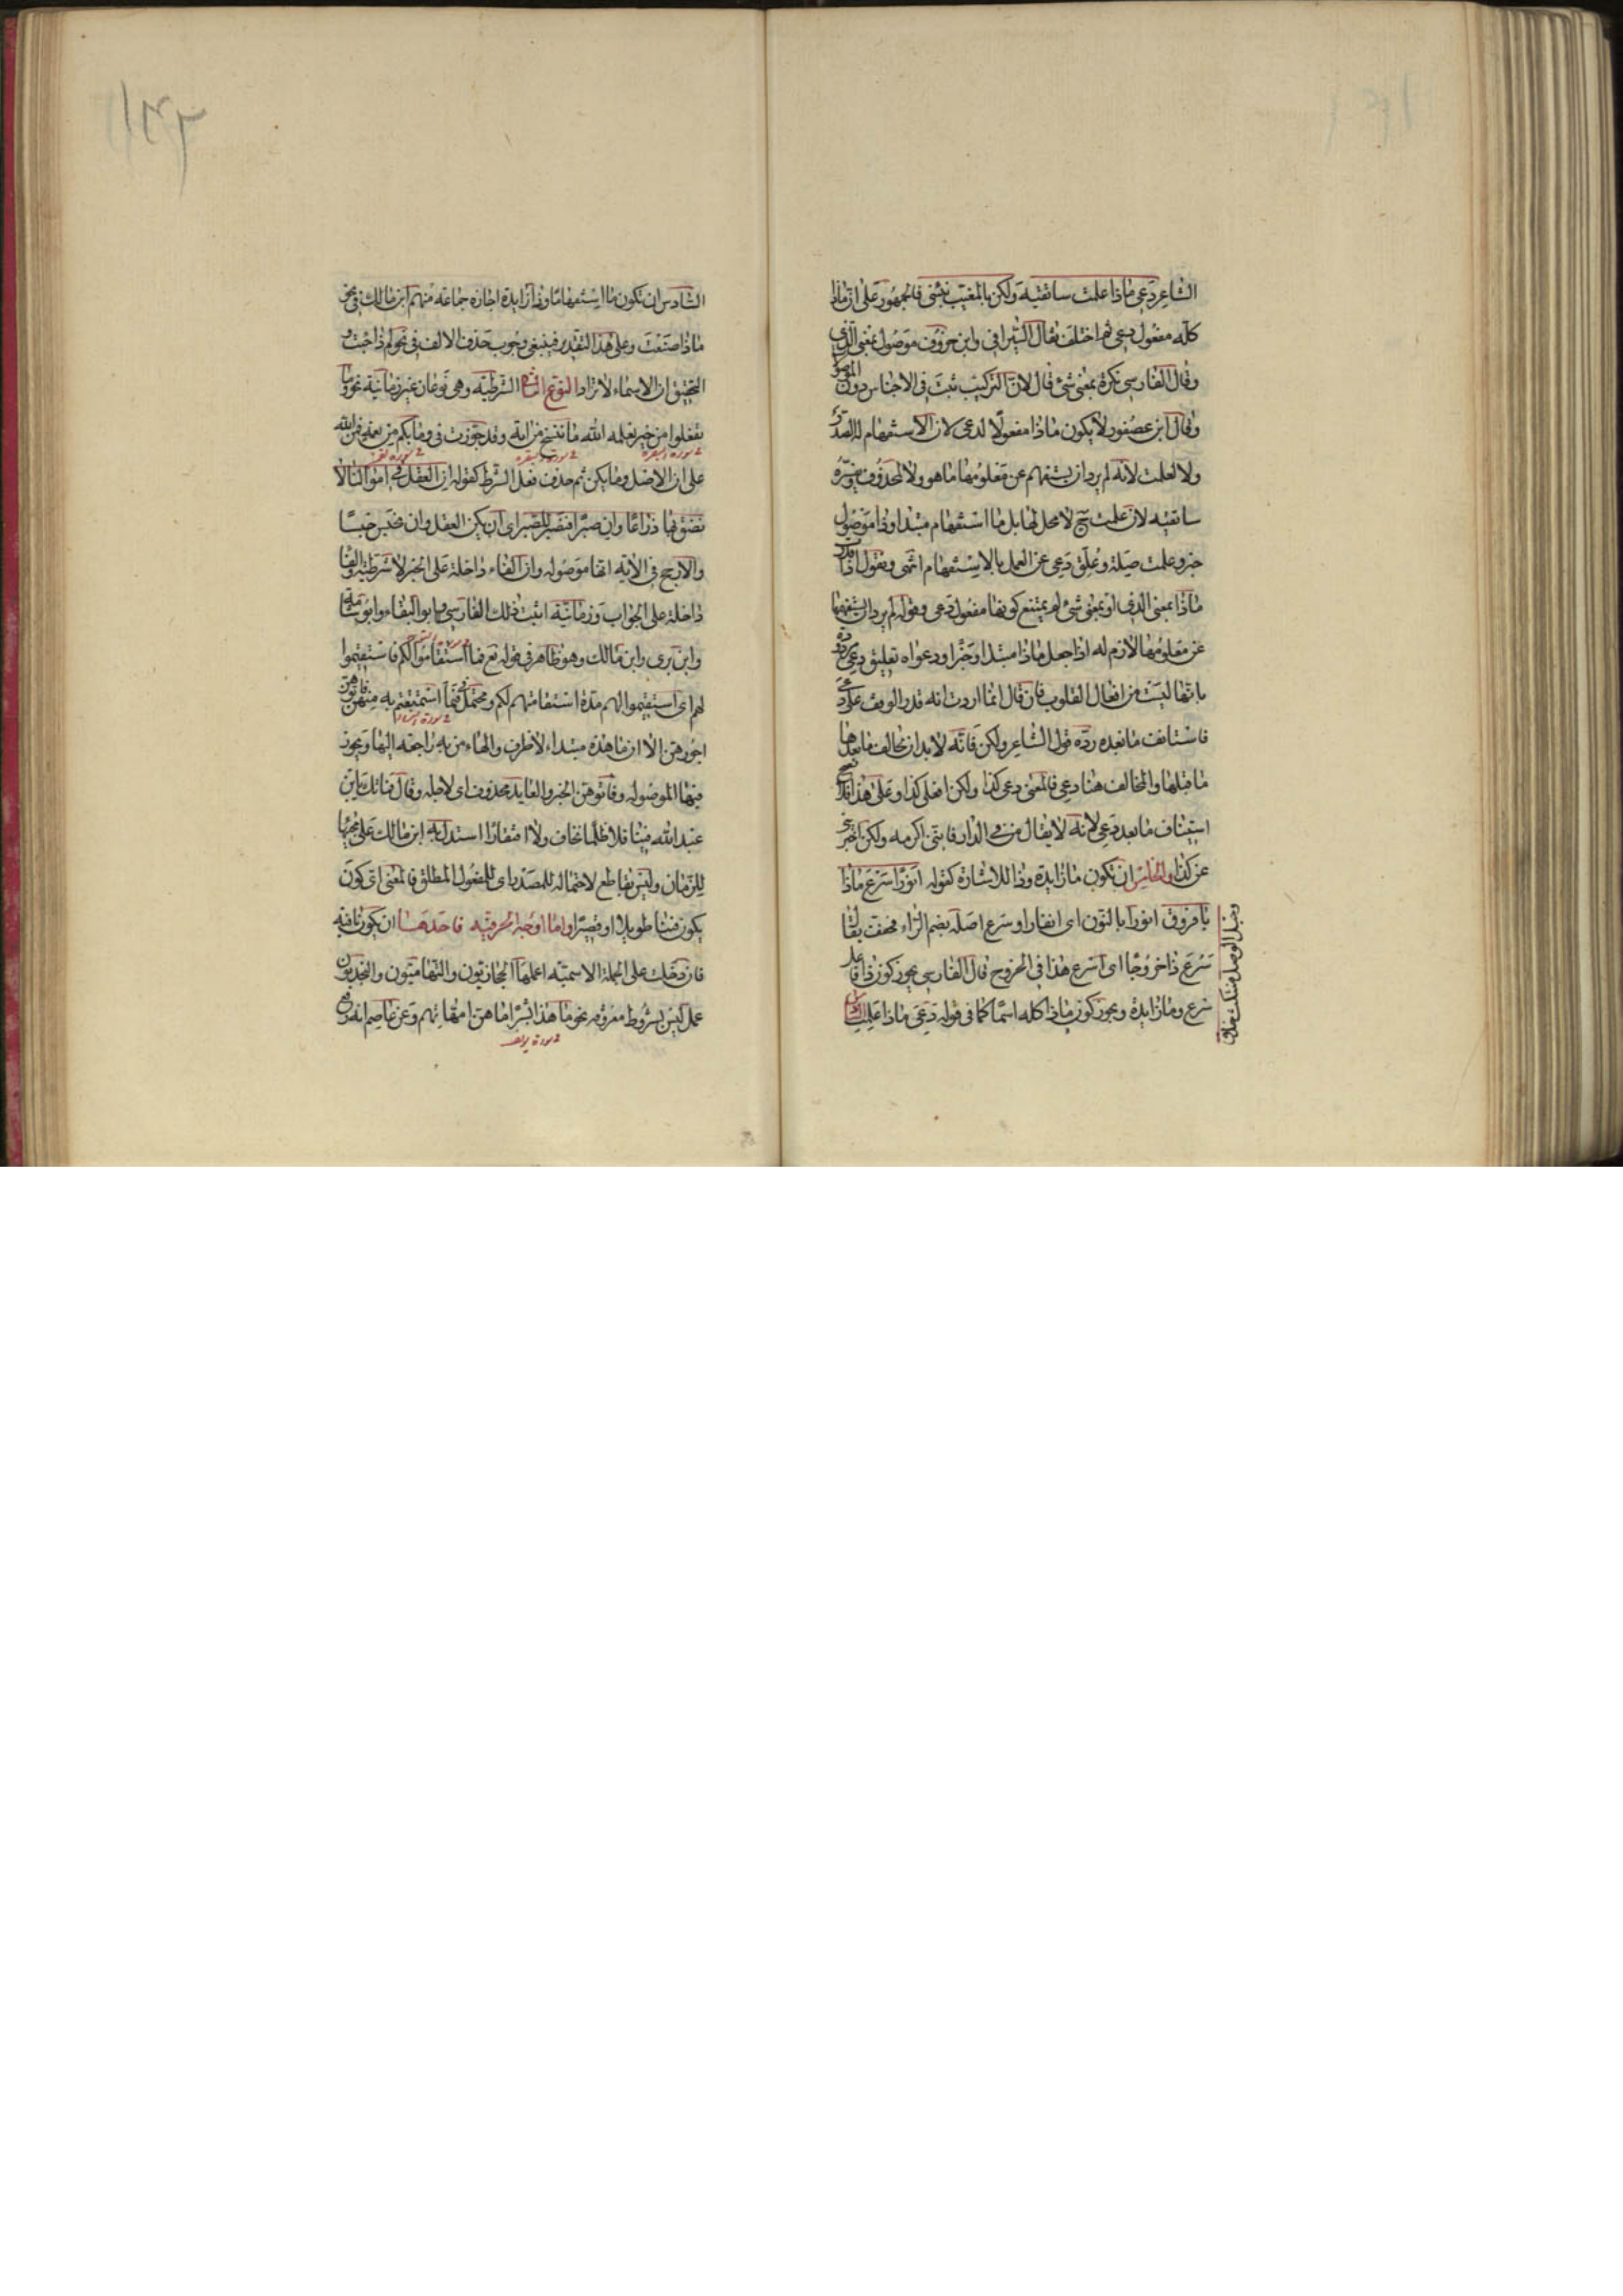 الشاعر دعي ماذا علمت ساتقيه ولكن بالمغيب نبئني فالجمهور على ان ماذا
كله مفعول دعي ثم اختلف فقال السيرافي وابن خروف موصول بمعنى الذي
وقال الفارسي نكرة بمعنى شئ قال لان التركيب ثبت في الاجناس دون الموصولات
وقال ابن عصفور لا يكون ماذا مفعولا لدعي لان الاستفهام له الصدر
ولا لعلمت لانه لم يرد ان يستفهم عن معلومها ما هو ولا لمحذوف يفسره
ساتقيه لان علمت ح لا محل لها بل ما استفهام مبتدا وذا موصول
خبر وعلمت صلة وعلق دعي عن العمل بالاستفهام انتهى ونقول اذا قدرت
ماذا بمعنى الذي او بمعنى شئ لم يمتنع كونها مفعول دعي وقوله لم يرد ان يستفهم
عن معلومها لازم له اذا جعل ماذا مبتدا وخبرا ودعواه تعليق دعي مردودة
بانها ليست من افعال القلوب فان قال انما اردت انه قدر الوقف على دعي
فاستانف ما بعده رده قول الشاعر ولكن فانه لا بد ان تخالف ما بعدها
ما قبلها والمخالف هنا دعي فالمعنى دعي كذا ولكن افعلي كذا وعلى هذا فلا يصح
استيناف ما بعد دعي لانه لا يقال من في الدار فانني اكرمه ولكن اخبرني
عن كذا والخامس ان تكون ما زايدة وذا للاشارة كقوله انورا سرع ماذا
يا فروق انورا بالنون اي انفارا وسرع اصله بضم الراء فخفف يقال
سرع ذا خروجا اي اسرع هذا في الخروج قال الفارسي يجوز كون ذا فاعل
سرع وما زايدة ويجوز كون ماذا كله اسما كما في قوله دعي ماذا علمت
وحبل الوصل منتكث حذيق
١٤٣
السادس ان تكون ما استفهاما وذا زايدة اجازه جماعة منهم ابن مالك في نحو
ماذا صنعت وعلى هذا التقدير فينبغي وجوب حذف الالف في نحو لم ذا جئت و
التحقيق ان الاسماء لا تزاد النوع الثالث الشرطية وهي نوعان غير زمانية نحو وما
تفعلوا من خير يعلمه الله ما ننسخ من اية وقد جوزت في وما بكم من نعمة فمن الله
على ان الاصل وما يكن ثم حذف فعل الشرط كقوله ان العقل في اموالنا لا
نضق بها ذراعا وان صبرا فنصبر للصبر اي ان يكن العقل وان نحبس حبسا
والارجح في الاية انها موصوله وان الفاء داخلة على الخبر لا شرطية والفا
داخلة على الجواب وزمانية اثبت ذلك الفارسي وابو البقاء وابو شامة
وابن بري وابن مالك وهو ظاهر في قوله تع فما استقاموا لكم فاستقيموا
لهم اي استقيموا لهم مدة استقامتهم لكم ومحتمل في فما استمتعتم به منهن فاتوهن
اجورهن الا ان ما هذه مبتداء لا ظرف والهاء من به راجعه اليها ويجوز
فيها الموصوله وفاتوهن الخبر والعايد محذوف اي لاجله وقال فما تك يا بن
عبد الله فينا فلا ظلما نخاف ولا افتقارا استدل به ابن مالك على مجيها
للزمان وليس بقاطع لاحتماله للمصدر اي للمفعول المطلق فالمعنى اي كون
يكون فينا طويلا او قصيرا واما اوجه الحرفيه فاحدها ان يكون نافيه
فان دخلت على الجملة الاسمية اعملها الحجازيون والتهاميون والنجديون
عمل ليس بشروط معروفه نحو ما هذا بشرا ما هن امهاتهم وعن عاصم انه رفع